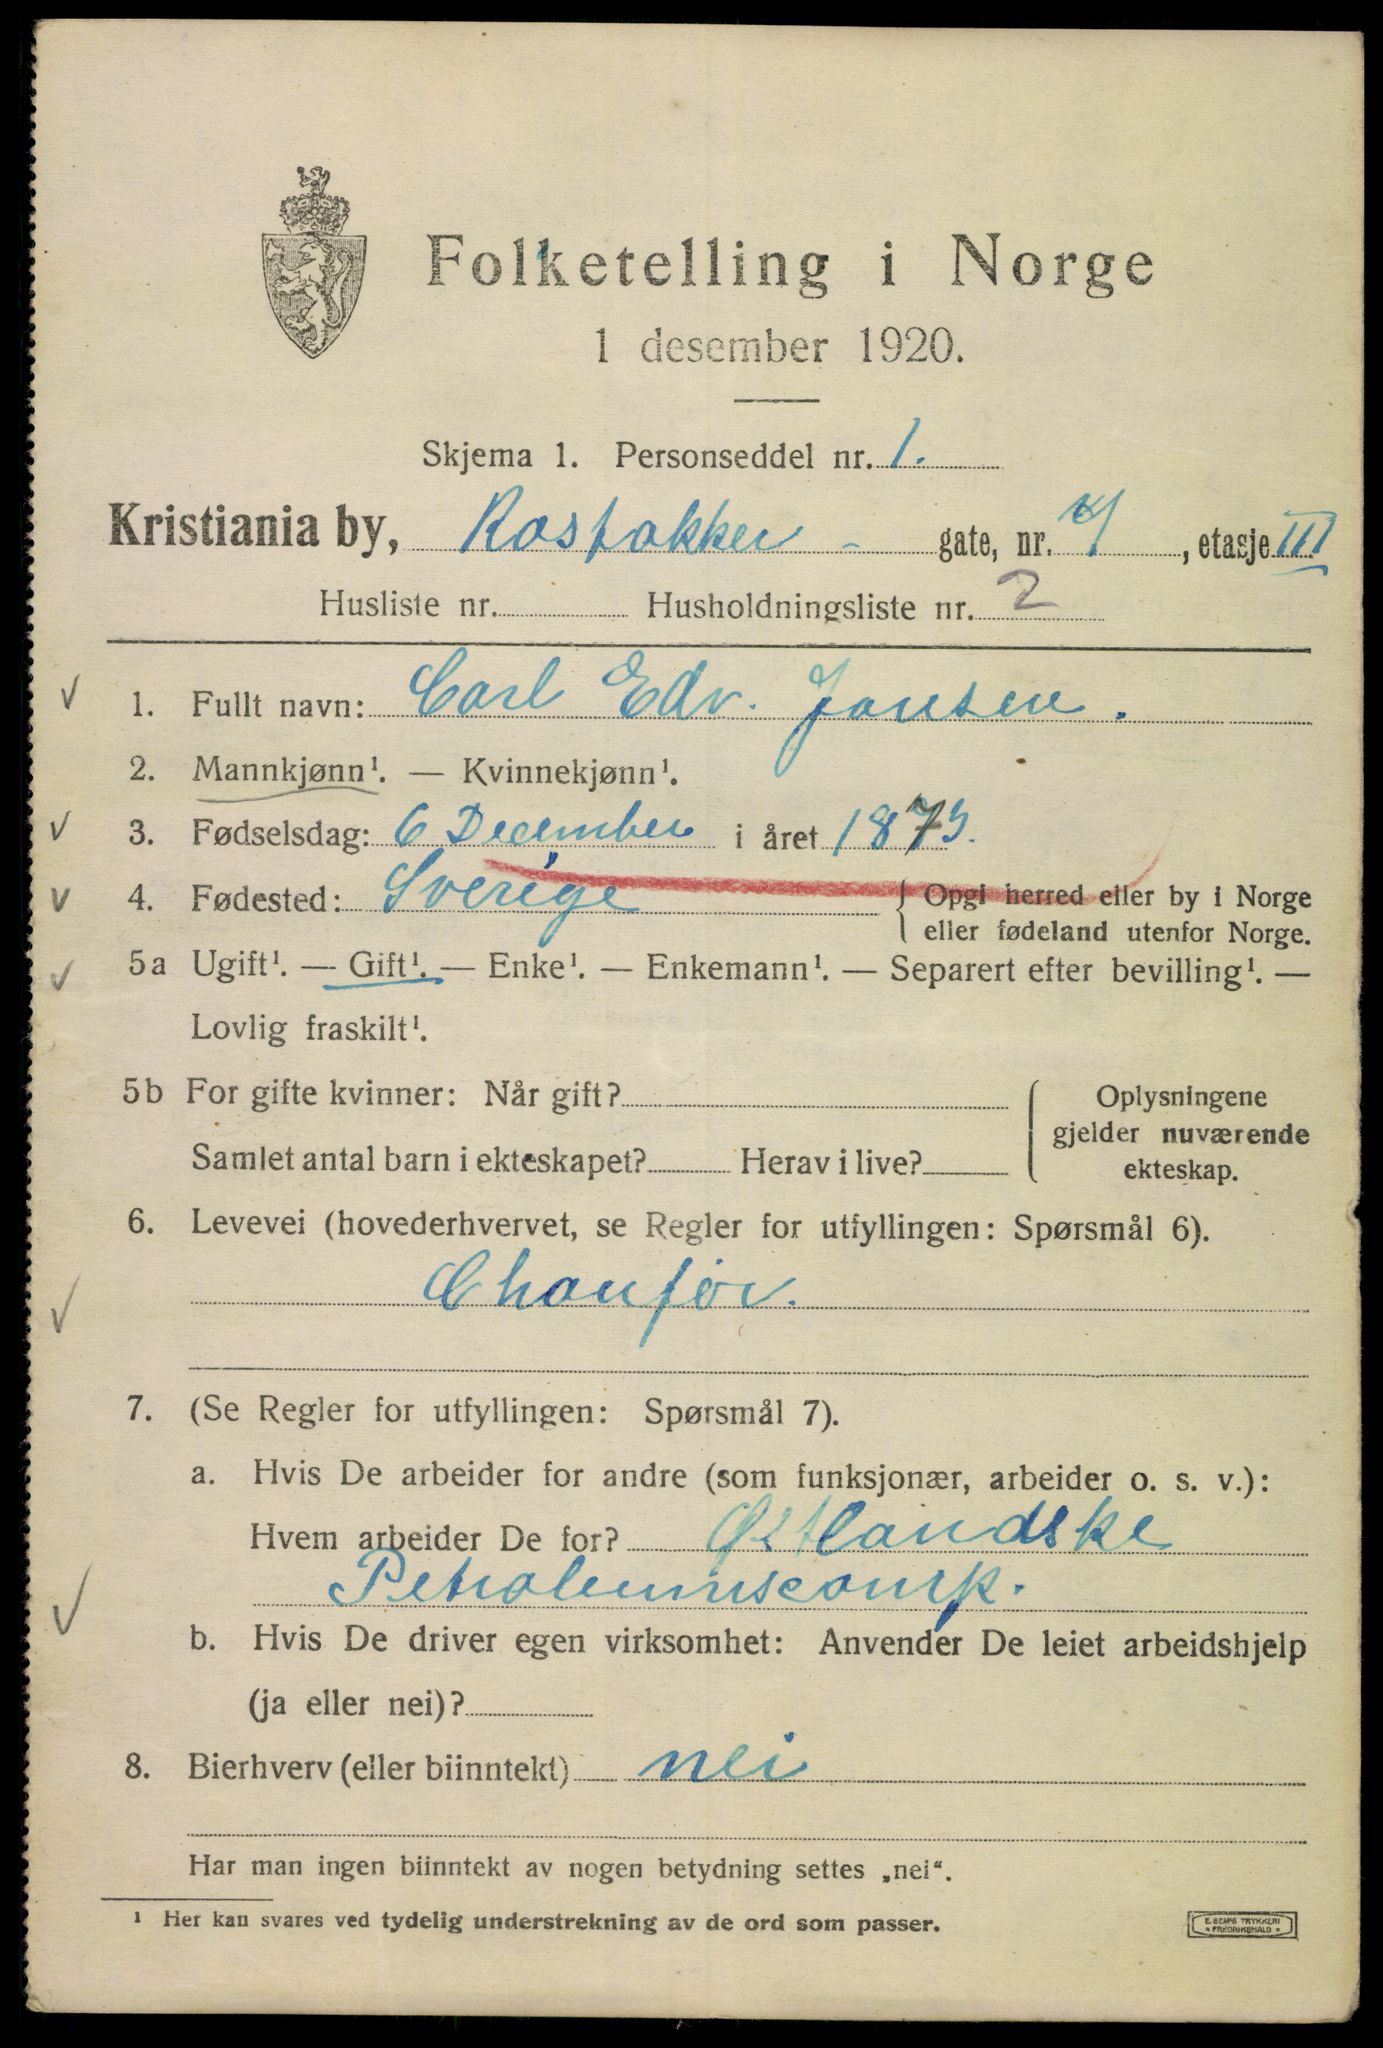 Folketelling i Norge
1 desember 1920.
Skjema 1. Personseddel nr. 1.
Kristiania by, Rostokker - gate, nr. 4, etasje III
Husliste nr. Husholdningsliste nr. 2
1. Fullt navn: Carl Edv. Jansen.
2. Mannkjønn¹. — Kvinnekjønn¹.
3. Fødselsdag: 6 December i året 1873.
4. Fødested: Sverige { Opgi herred eller by i Norge
eller fødeland utenfor Norge.
5a Ugift¹. — Gift¹. — Enke¹. — Enkemann¹. — Separert efter bevilling¹. —
Lovlig fraskilt¹.
5b For gifte kvinner: Når gift? { Oplysningene
gjelder nuværende
Samlet antal barn i ekteskapet? Herav i live? ekteskap.
6. Levevei (hovederhvervet, se Regler for utfyllingen: Spørsmål 6).
Chauför.
7. (Se Regler for utfyllingen: Spørsmål 7).
a. Hvis De arbeider for andre (som funksjonær, arbeider o. s. v.):
Hvem arbeider De for? Østlandske
Petroleumscomp.
b. Hvis De driver egen virksomhet: Anvender De leiet arbeidshjelp
(ja eller nei)?
8. Bierhverv (eller biinntekt) nei
Har man ingen biinntekt av nogen betydning settes „nei“.
¹ Her kan svares ved tydelig understrekning av de ord som passer.
E. SEM'S TRYKKERI
* FREDRIKSHALD *